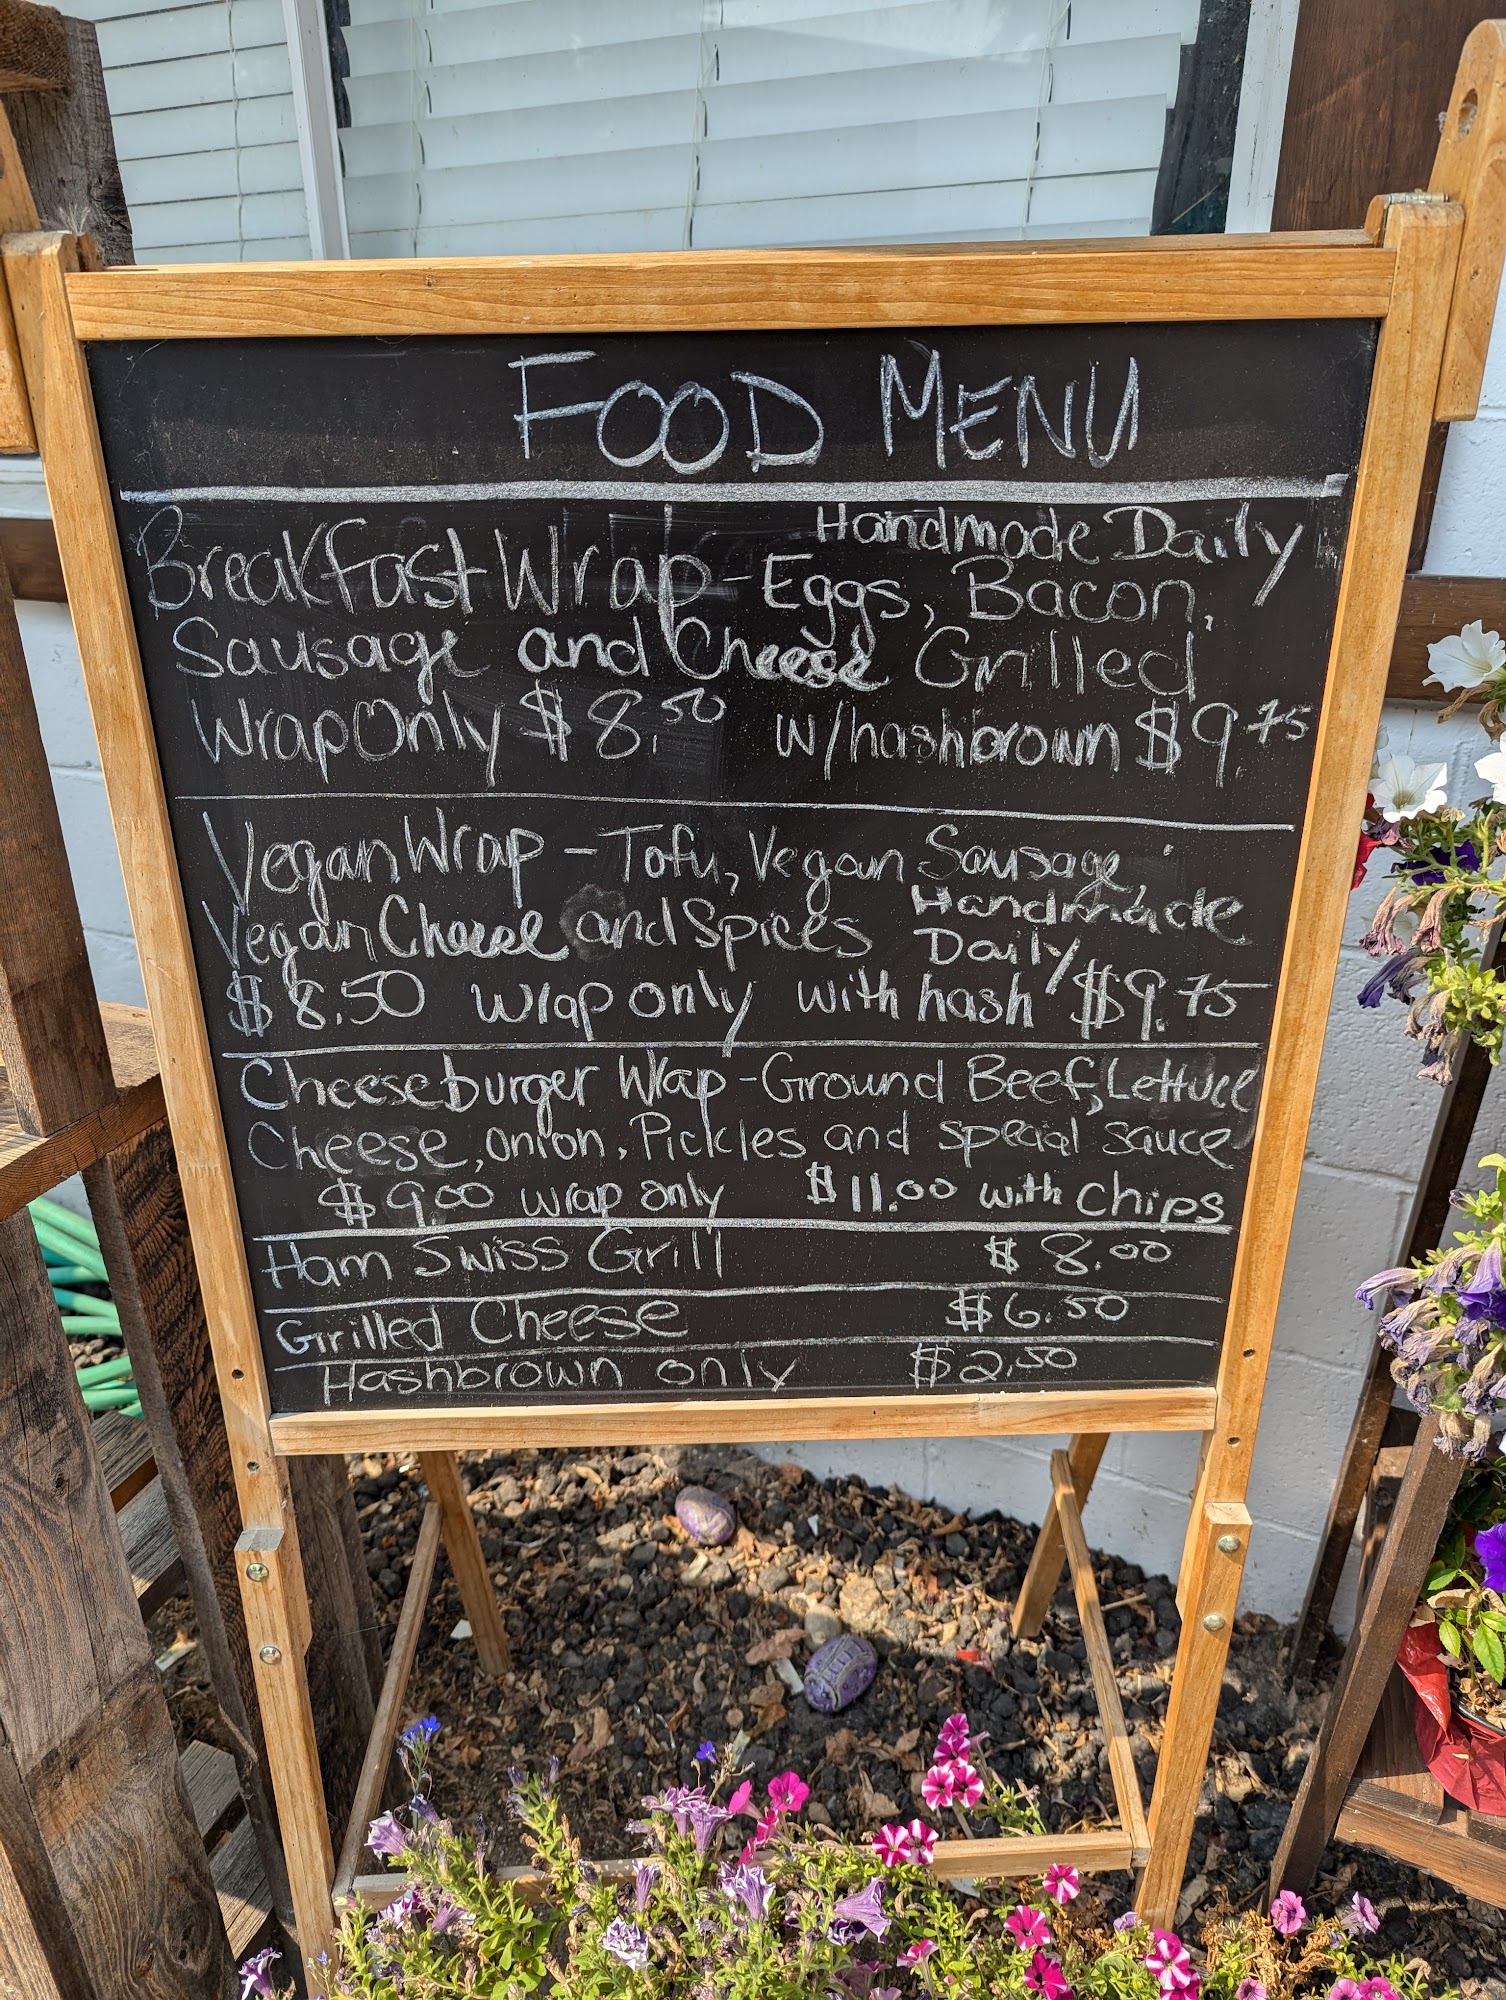 FOOD MENU
Handmade Daily
Breakfast Wrap - Eggs, Bacon,
Sausage and Cheese Grilled
Wrap Only $8.50 w/hashbrown $9.75
Vegan Wrap - Tofu, Vegan Sausage,
Vegan Cheese and Spices Handmade
Daily
$8.50 wrap only with hash $9.75
Cheeseburger Wrap - Ground Beef, Lettuce
Cheese, onion, Pickles and special sauce
$9.00 wrap only $11.00 with chips
Ham Swiss Grill $8.00
Grilled Cheese $6.50
Hashbrown only $2.50